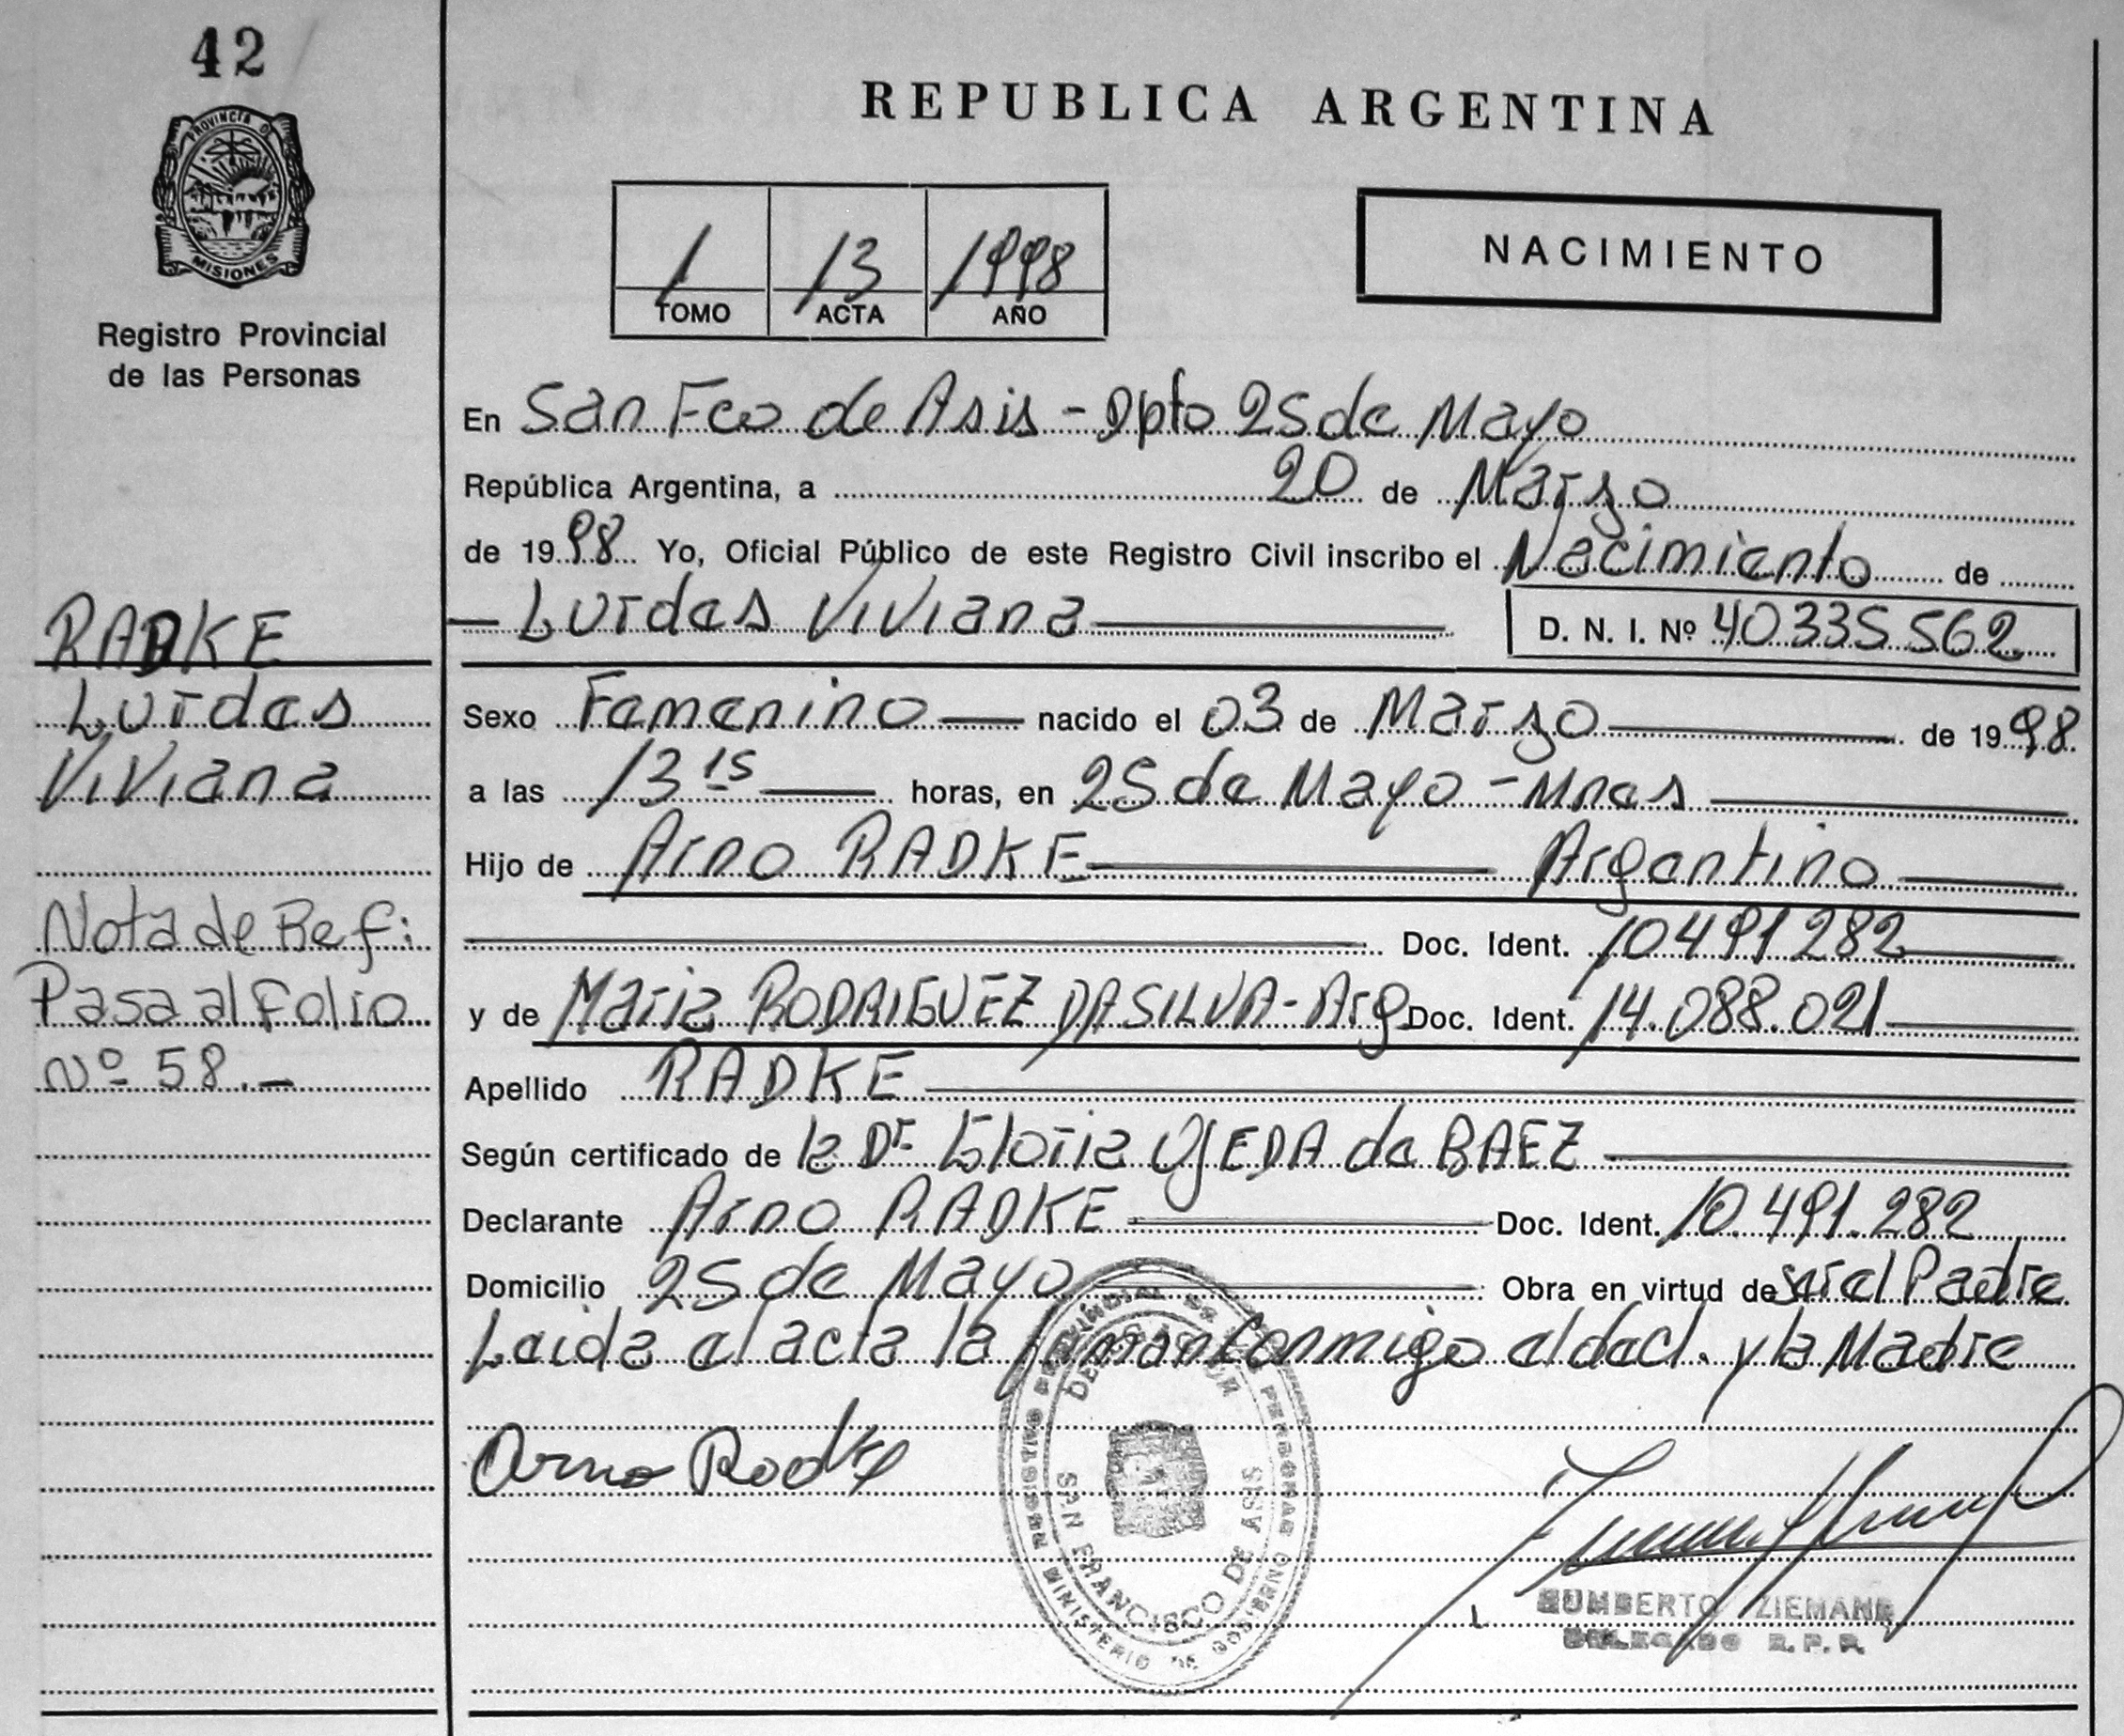 42
PROVINCIA DE
MISIONES
Registro Provincial
de las Personas
RADKE
Lurdes
Viviana
Nota de Ref:
Pasa al Folio
Nº 58.-
REPUBLICA ARGENTINA
1 13 1998
TOMO ACTA AÑO
NACIMIENTO
En San Fco de Asis - Dpto 25 de Mayo
República Argentina, a 20 de Marzo
de 1998 Yo, Oficial Público de este Registro Civil inscribo el Nacimiento de
Lurdes Viviana D. N. I. Nº 40335562
Sexo Femenino nacido el 03 de Marzo de 1998
a las 13 15 horas, en 25 de Mayo - Mnes
Hijo de Arno RADKE Argentino
Doc. Ident. 10491282
y de Maria RODRIGUEZ DA SILVA - Arg Doc. Ident. 14.088.021
Apellido RADKE
Según certificado de la Dr Gloria OJEDA de BAEZ
Declarante Arno RADKE Doc. Ident. 10.491.282
Domicilio 25 de Mayo Obra en virtud de ser el Padre
Leida el acta la firman Conmigo el decl. y la Madre
Arno Radke
SAN FRANCISCO DE ASIS
MINISTERIO DE GOBIERNO
HUMBERTO ZIEMANN
DELEGADO R. P. P.